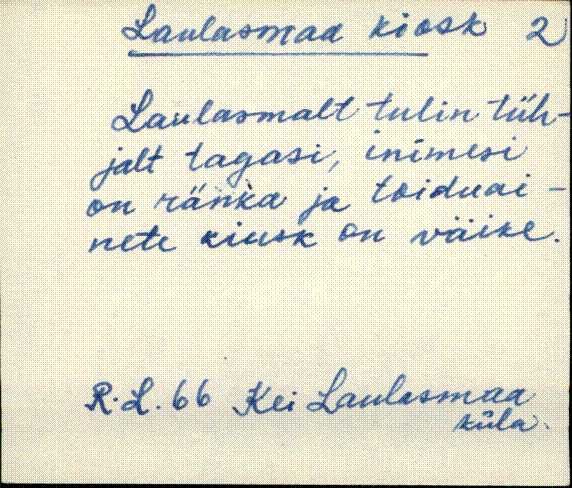 Laulasmaa kiosk 2
Laulasmalt tulin tüh-
jalt tagasi, inimesi
on ränka ja toiduai-
nete kiusk on väike.
R.L. 66 Kei Laulasmaa
küla.